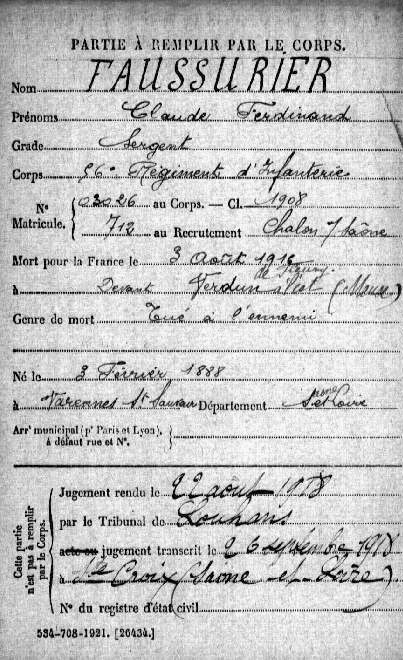 PARTIE À REMPLIR PAR LE CORPS.
Nom FAUSSURIER
Prénoms Claude Ferdinand
Grade Sergent
Corps 56e Régiment d'Infanterie
Nº Matricule. { 03026 au Corps. — Cl. 1908
712 au Recrutement Chalon s/Saône
Mort pour la France le 3 Août 1916
à Devant Verdun (Meuse)
Genre de mort Tué à l'ennemi
Né le 3 Février 1888
à Varennes St Sauveur Département Saône et Loire
Arrt municipal (pr Paris et Lyon),
à défaut rue et Nº.
Cette partie n'est pas à remplir par le Corps.
Jugement rendu le 22 août 1918
par le Tribunal de Louhans
acte ou jugement transcrit le 26 septembre 1918
à Ste Croix (Saône et Loire)
Nº du registre d'état civil
534-708-1921. [26434.]